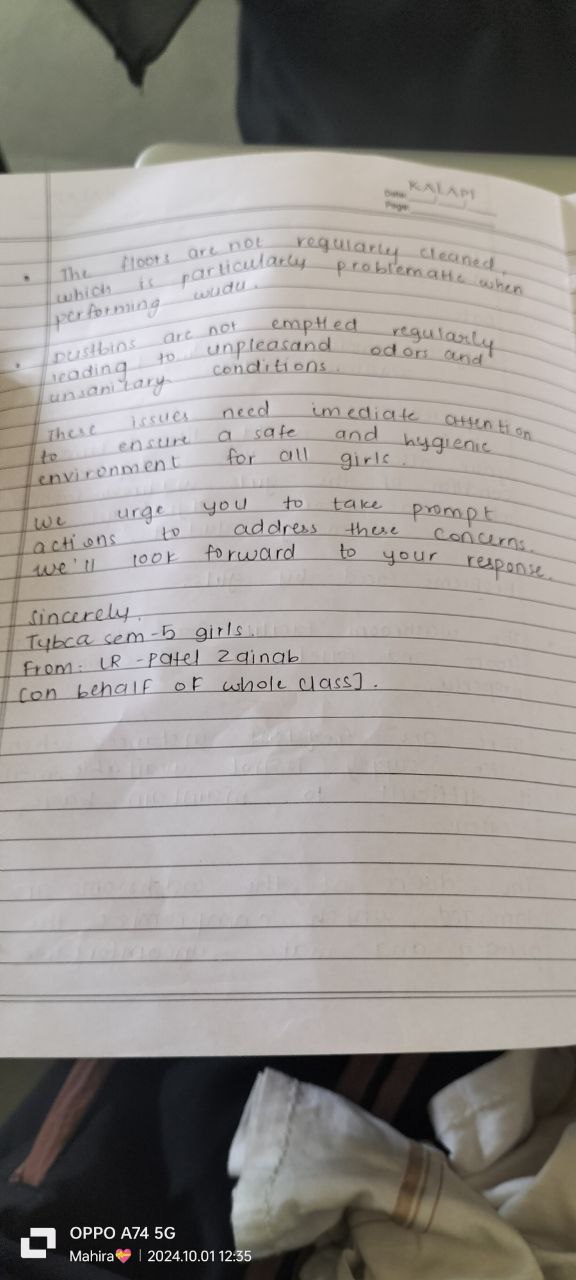 KALAPI
Date:
Page:
• The floors are not regularly cleaned,
which is particularly problematic when
performing wudu.
• Dustbins are not emptied regularly
leading to unpleasand odors and
unsanitary conditions.
These issues need imediate attention
to ensure a safe and hygienic
environment for all girls.
We urge you to take prompt
actions to address these concerns.
we'll look forward to your response.
sincerely,
Tybca sem-5 girls.
From: LR - Patel Zainab
[on behalf of whole class].
OPPO A74 5G
Mahira💝 | 2024.10.01 12:35